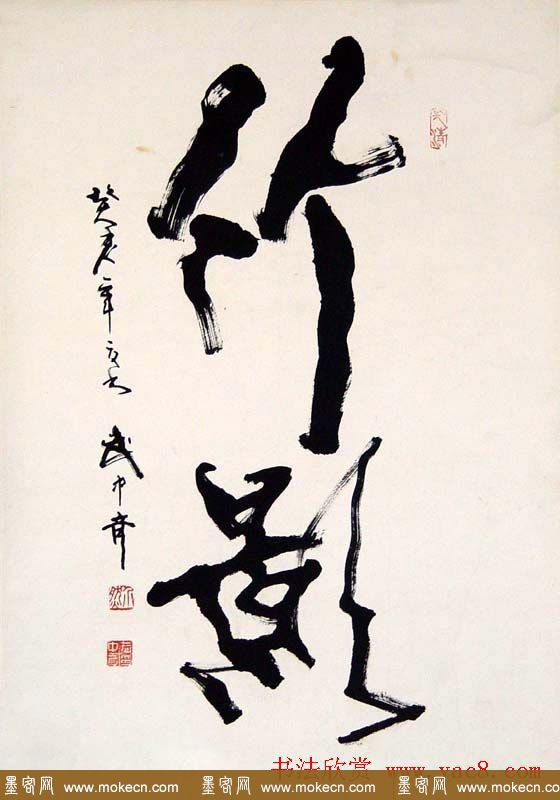 竹影
癸亥年夏书 武中奇
书法欣赏 www.yac8.com
墨客网 www.mokecn.com 墨客网 www.mokecn.com 墨客网 www.mokecn.com